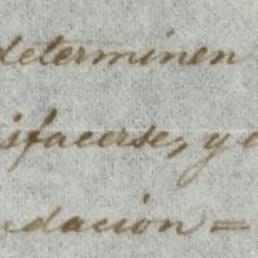 determinen
isfacerse, y e
ndacion =